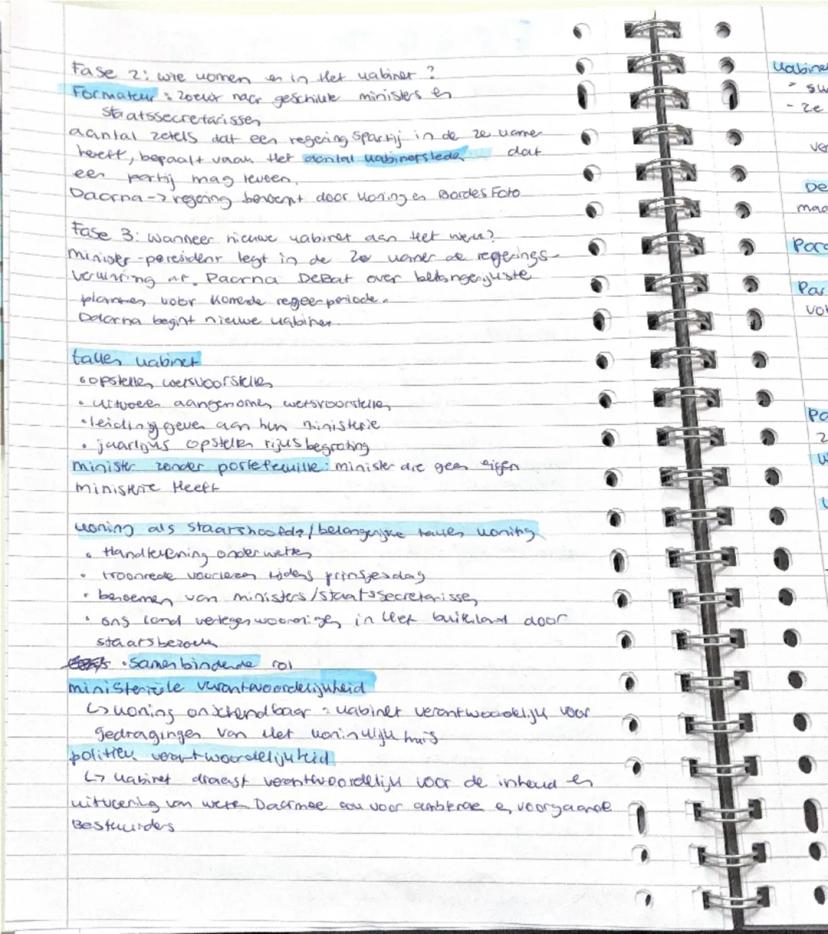 Fase 2: wie komen er in het kabinet?
Formateur: zoekt naar geschikte ministers en
staatssecretarissen
aantal zetels dat een regeringspartij in de 2e kamer
heeft, bepaalt vaak het aantal kabinetsleden dat
een partij mag leveren.
Daarna -> regering benoemt door koning en Bordes Foto
Fase 3: Wanneer nieuwe kabinet aan het werk?
minister-president legt in de 2e kamer de regerings-
verklaring af. Daarna Debat over belangrijkste
plannen voor komende regeerperiode.
Daarna begint nieuwe kabinet
taken kabinet
• opstellen wetsvoorstellen
• uitvoeren aangenomen wetsvoorstellen
• leiding geven aan hun ministerie
• jaarlijks opstellen rijksbegroting
minister zonder portefeuille: minister die geen eigen
ministerie heeft
koning als staatshoofd/belangrijke taken koning
• Handtekening onder wetten
• troonrede voorlezen tijdens prinsjesdag
• benoemen van ministers/staatssecretarissen
• ons land vertegenwoordigen in het buitenland door
staatsbezoek
• samenbindende rol
ministeriële verantwoordelijkheid
↳ koning onschendbaar = kabinet verantwoordelijk voor
gedragingen van het koninklijk huis
politiek verantwoordelijkheid
↳ kabinet draagt verantwoordelijk voor de inhoud en
uitvoering van wetten Daarmee ook voor ambtenaren en voorgaande
Bestuurders
kabinet
- 2e
De
Par